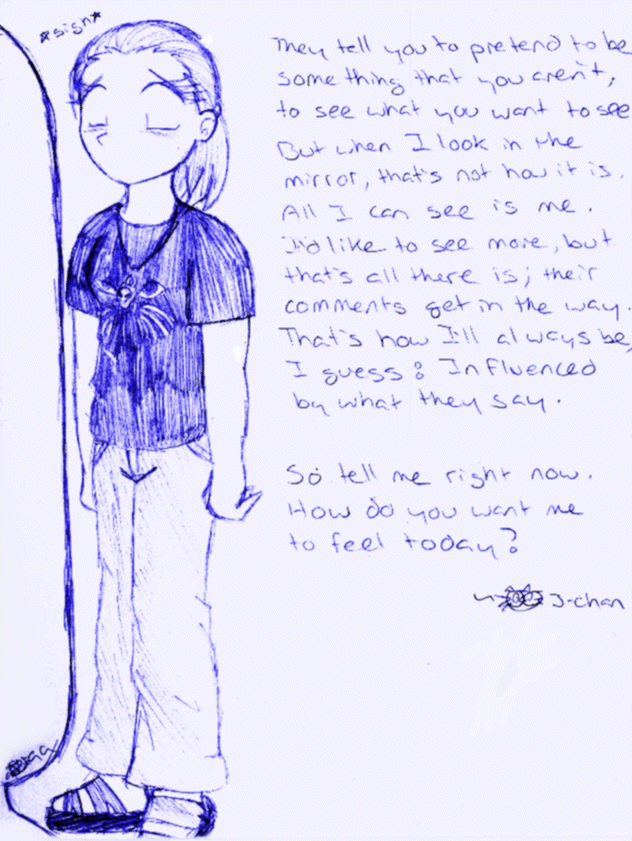 *sign*
They tell you to pretend to be
something that you aren't,
to see what you want to see
But when I look in the
mirror, that's not how it is.
All I can see is me.
I'd like to see more, but
that's all there is; their
comments get in the way.
That's how I'll always be,
I guess: Influenced
by what they say.
So tell me right now.
How do you want me
to feel today?
J-chan